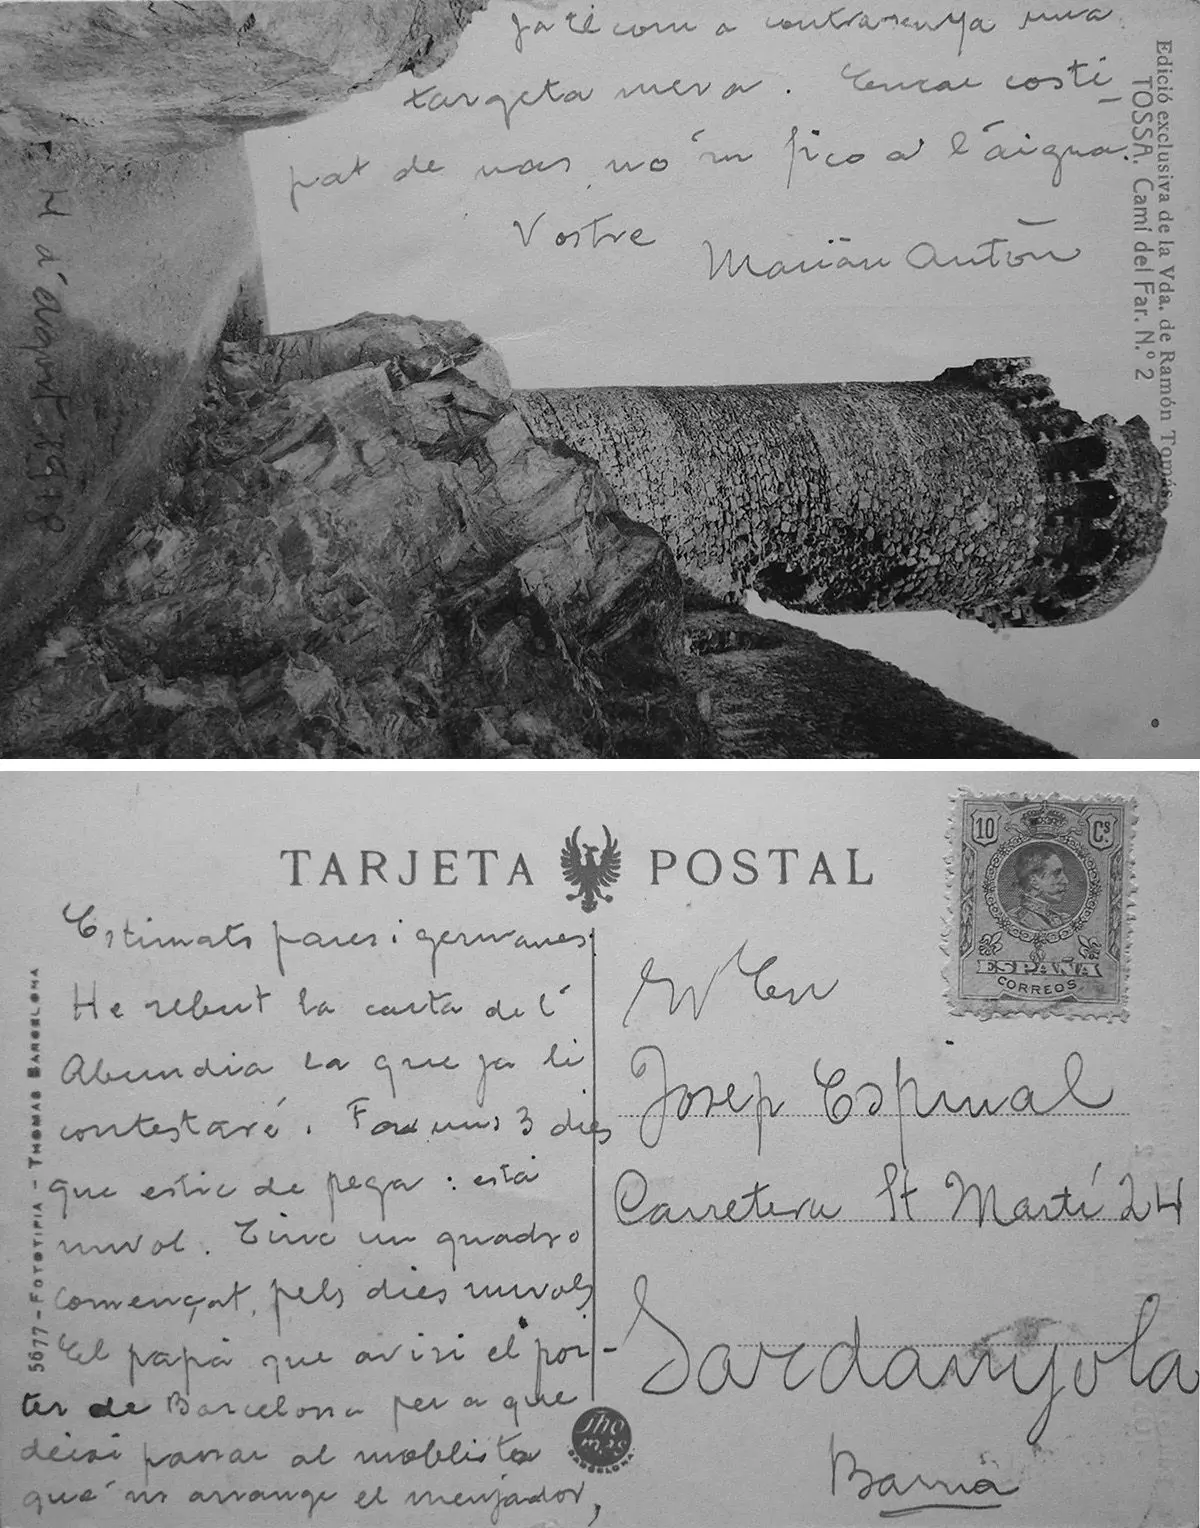 ja té com a contrasenya una
targeta meva. Encar costi-
pat de nas no 'm fico a l'áigua.
Vostre
Marián Antón
Edició exclusiva de la Vda. de Ramón Tomás
TOSSA. Camí del Far. N.º 2
4 d'Agost 1918
TARJETA POSTAL
10 Cs.
ESPAÑA
CORREOS
Estimats pares i germanes:
He rebut la carta de l'
Abundia la que ja li
contestaré. Fa uns 3 dies
que estic de pega: está
nuvol. Tinc un quadro
començat, pels dies nuvols
El papá que avisi el por-
ter de Barcelona per a que
deixi passar al moblista
que 'ns arrange el menjador,
5677 - FOTOTIPIA - THOMAS BARCELONA
Thomas
BARCELONA
En
Josep Espinal
Carretera St Martí 24
Sardanyola
Barna